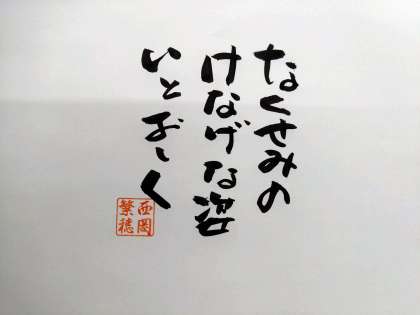 なくせみの
けなげな姿
いとおしく
西岡
繁穂